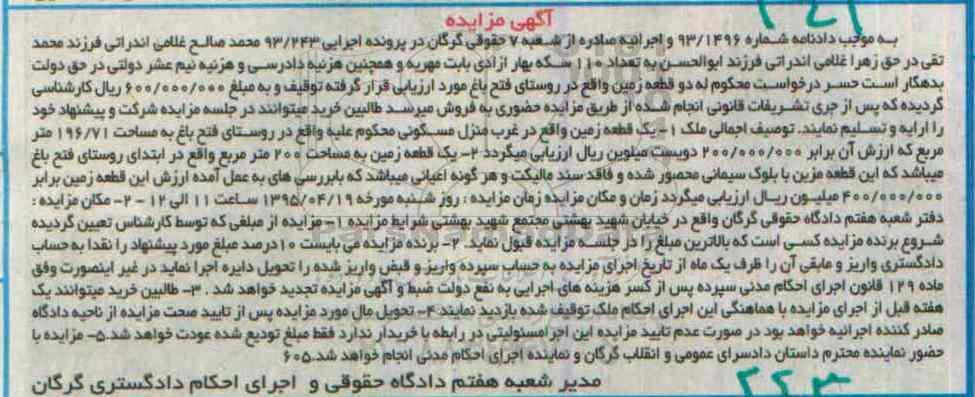 آگهی مزایده
به موجب دادنامه شماره ۹۳/۱۴۹۶ و اجرائیه صادره از شعبه ۷ حقوقی گرگان در پرونده اجرایی ۹۳/۲۴۳ محمد صالح غلامی اندراتی فرزند محمد
تقی در حق زهرا غلامی اندراتی فرزند ابوالحسن به تعداد ۱۱۰ سکه بهار آزادی بابت مهریه و همچنین هزنیه دادرسی و هزنیه نیم عشر دولتی در حق دولت
بدهکار است حسر درخواست محکوم له دو قطعه زمین واقع در روستای فتح باغ مورد ارزیابی قرار گرفته توقیف و به مبلغ ۶۰۰/۰۰۰/۰۰۰ ریال کارشناسی
گردیده که پس از جری تشریفات قانونی انجام شده از طریق مزایده حضوری به فروش میرسد طالبین خرید میتوانند در جلسه مزایده شرکت و پیشنهاد خود
را ارایه و تسلیم نمایند. توصیف اجمالی ملک ۱- یک قطعه زمین واقع در غرب منزل مسکونی محکوم علیه واقع در روستای فتح باغ به مساحت ۱۹۶/۷۱ متر
مربع که ارزش آن برابر ۲۰۰/۰۰۰/۰۰۰ دویست میلوین ریال ارزیابی میگردد ۲- یک قطعه زمین به مساحت ۲۰۰ متر مربع واقع در ابتدای روستای فتح باغ
میباشد که این قطعه مزین با بلوک سیمانی محصور شده و فاقد سند مالیکت و هر گونه اعیانی میباشد که بابررسی های به عمل آمده ارزش این قطعه زمین برابر
۴۰۰/۰۰۰/۰۰۰ میلیون ریال ارزیابی میگردد زمان و مکان مزایده زمان مزایده : روز شنبه مورخه ۱۳۹۵/۰۴/۱۹ ساعت ۱۱ الی ۱۲ - ۲- مکان مزایده :
دفتر شعبه هفتم دادگاه حقوقی گرگان واقع در خیابان شهید بهشتی مجتمع شهید بهشتی شرایط مزایده ۱- مزایده از مبلغی که توسط کارشناس تعیین گردیده
شروع برنده مزایده کسی است که بالاترین مبلغ را در جلسه مزایده قبول نماید. ۲- برنده مزایده می بایست ۱۰ درصد مبلغ مورد پیشنهاد را نقدا به حساب
دادگستری واریز و مابقی آن را ظرف یک ماه از تاریخ اجرای مزایده به حساب سپرده واریز و قبض واریز شده را تحویل دایره اجرا نماید در غیر اینصورت وفق
ماده ۱۲۹ قانون اجرای احکام مدنی سپرده پس از کسر هزینه های اجرایی به نفع دولت ضبط و آگهی مزایده تجدید خواهد شد . ۳- طالبین خرید میتوانند یک
هفته قبل از اجرای مزایده با هماهنگی این اجرای احکام ملک توقیف شده بازدید نمایند ۴- تحویل مال مورد مزایده پس از تایید صحت مزایده از ناحیه دادگاه
صادر کننده اجرائیه خواهد بود در صورت عدم تایید مزایده این اجرامسئولیتی در رابطه با خریدار ندارد فقط مبلغ تودیع شده عودت خواهد شد.۵- مزایده با
حضور نماینده محترم داستان دادسرای عمومی و انقلاب گرگان و نماینده اجرای احکام مدنی انجام خواهد شد.۶۰۵
مدیر شعبه هفتم دادگاه حقوقی و اجرای احکام دادگستری گرگان